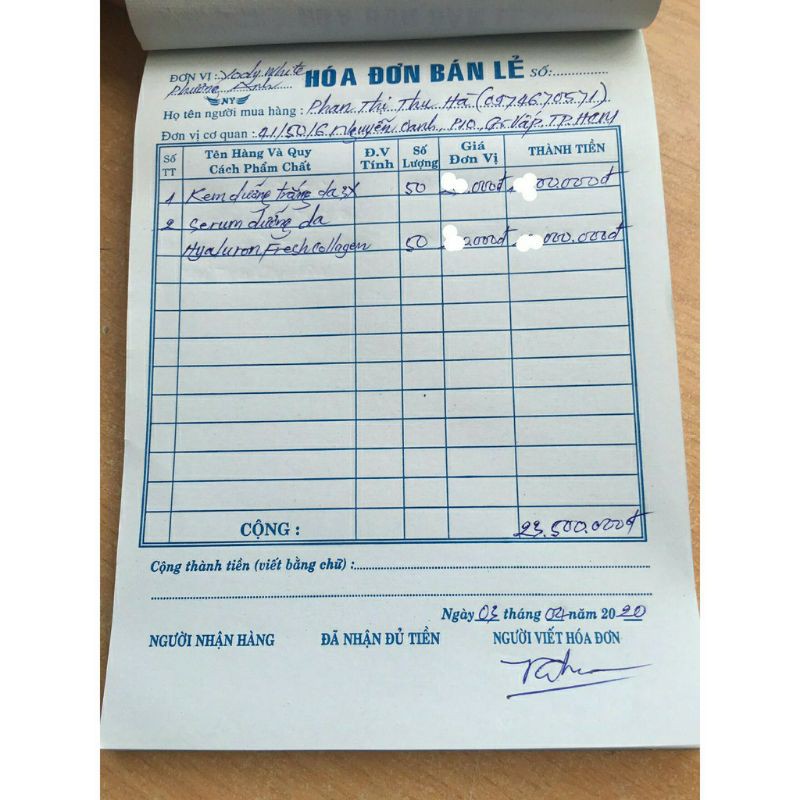 ĐƠN VỊ : Body White
Phương Anh
HÓA ĐƠN BÁN LẺ SỐ:
NY
Họ tên người mua hàng : Phan Thị Thu Hà (0974670571)
Đơn vị cơ quan : 41/50/6 Nguyễn Oanh P10 Gò Vấp. TP.HCM
Số TT Tên Hàng Và Quy Cách Phẩm Chất Đ.V Tính Số Lượng Giá Đơn Vị THÀNH TIỀN
1 Kem dưỡng trắng da 3X 50 .000đ 00.000đ
2 Serum dưỡng da
Hyaluron Fresh collagen 50 2000đ .000.000đ
CỘNG : 23.500.000đ
Cộng thành tiền (viết bằng chữ) :
Ngày 03 tháng 04 năm 2020
NGƯỜI NHẬN HÀNG ĐÃ NHẬN ĐỦ TIỀN NGƯỜI VIẾT HÓA ĐƠN